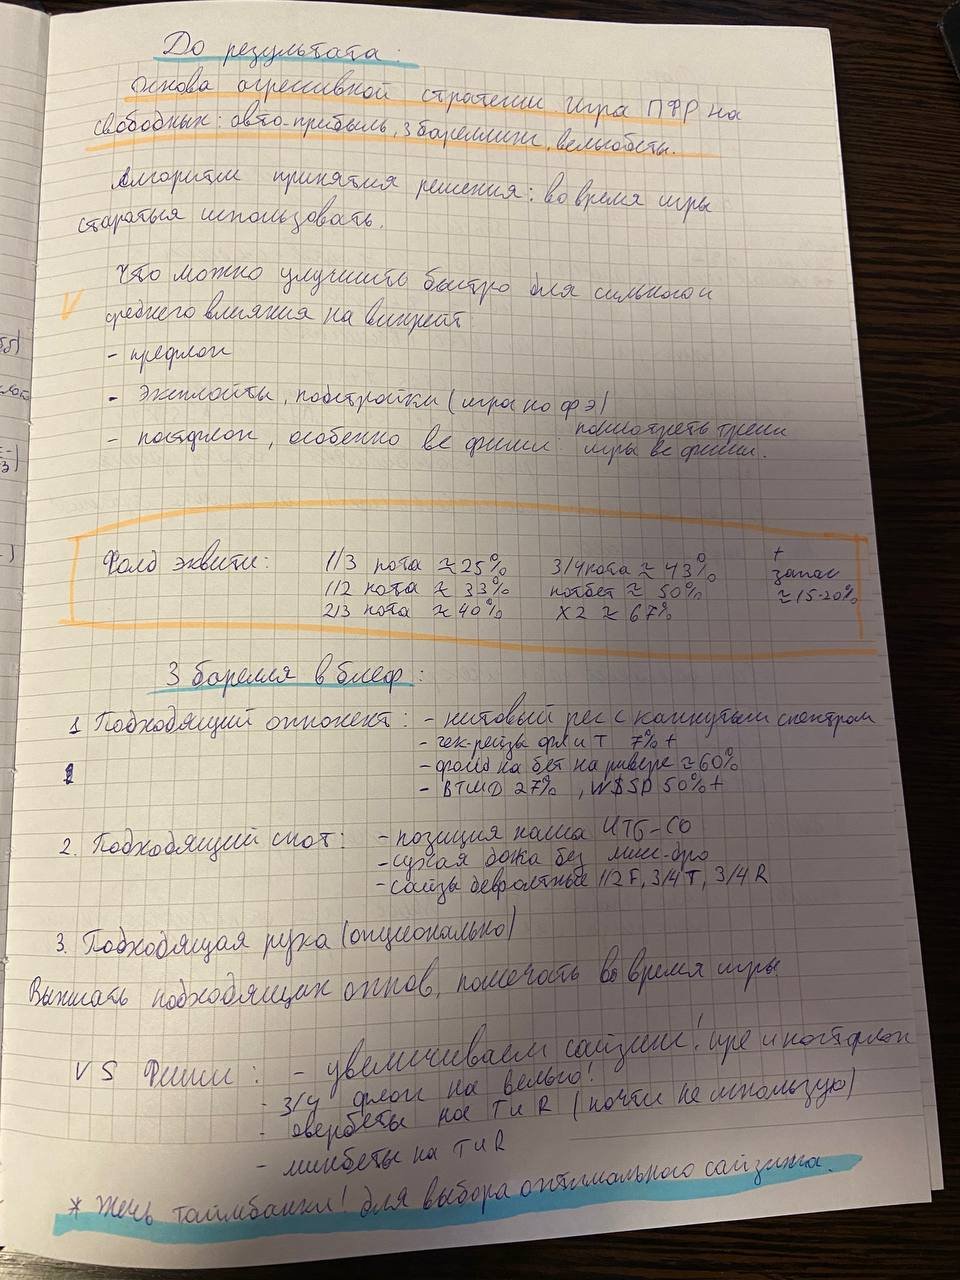 До результата:
Основа агрессивной стратегии игра ПФР на
свободных: авто-прибыль, 3 бареллинг, вельюбеты.
Алгоритм принятия решения: во время игры
стараться использовать.
Что можно улучшить быстро для сильного и
V среднего влияния на винрейт
- префлоп
- эксплойты, подстройки (игра по фэ)
- постфлоп, особенно vs фиши: посмотреть трени
игры vs фиши.
Фолд эквити: 1/3 пота ≈ 25% 3/4 пота ≈ 43% +
1/2 пота ≈ 33% потбет ≈ 50% запас
2/3 пота ≈ 40% X2 ≈ 67% ≈ 15-20%
3 барелля в блеф:
1 Подходящий оппонент: - нитовый рег с капнутым спектром
- чек-рейзы фл и Т 7%+
- фолд на бет на ривере ≈ 60%
- ВТШД 27%, W$SD 50%+
2. Подходящий спот: - позиция наша UTG-CO
- сухая доска без мисс-дро
- сайзы 1/2 F, 3/4 T, 3/4 R
3. Подходящая рука (опционально)
подходящих оппов, помечать во время игры
VS Фиши: - увеличиваем сайзинг! пре и постфлоп
- 3/4 флоп на велью!
- овербеты на T и R (почти не использую)
- минбеты на T и R
* Жечь таймбанки! для выбора оптимального сайзинга.